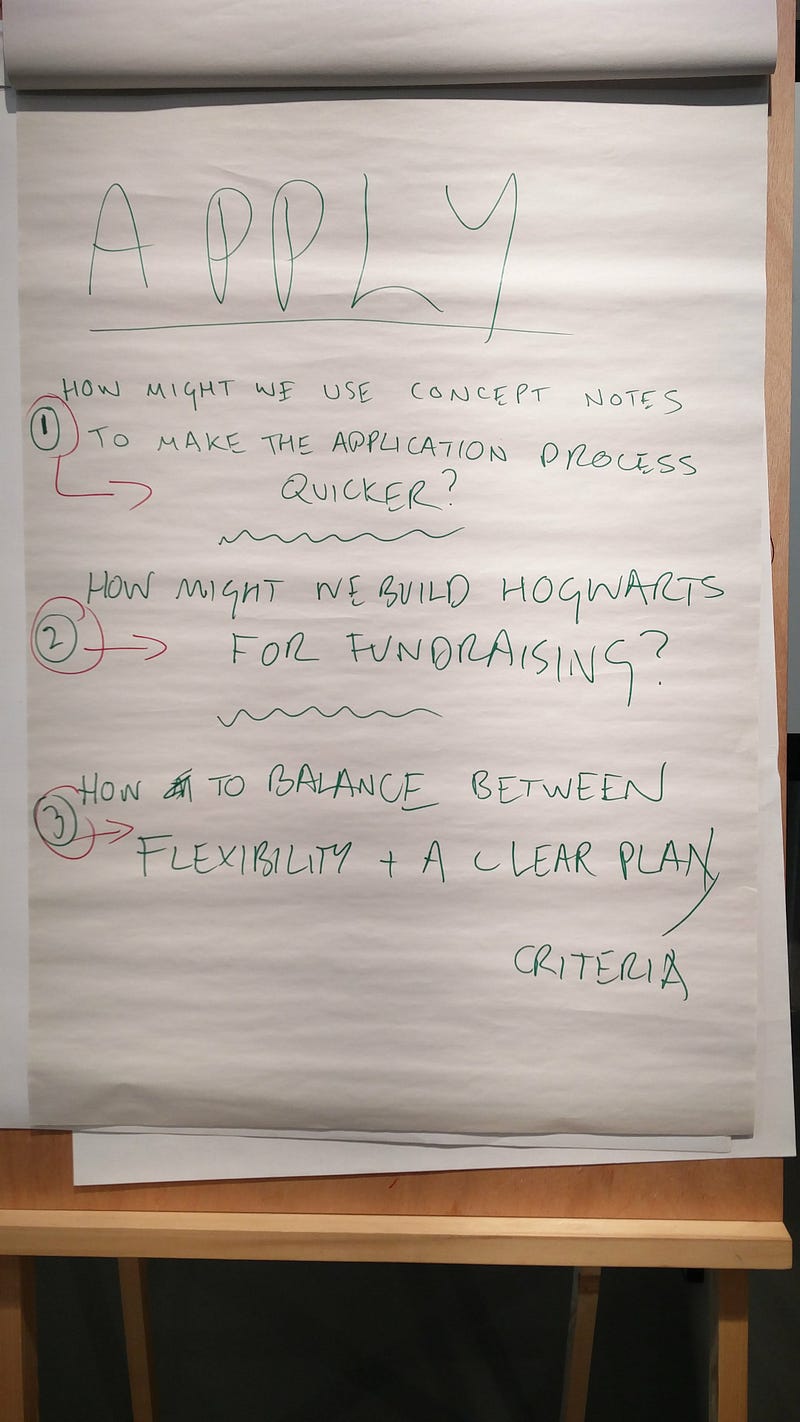 APPLY
HOW MIGHT WE USE CONCEPT NOTES
1 TO MAKE THE APPLICATION PROCESS
QUICKER?
HOW MIGHT WE BUILD HOGWARTS
2 FOR FUNDRAISING?
HOW TO BALANCE BETWEEN
3 FLEXIBILITY + A CLEAR PLAN
CRITERIA